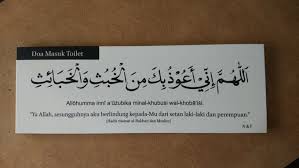 Doa Masuk Toilet
اَللّٰهُمَّ إِنِّيْ أَعُوْذُ بِكَ مِنَ الْخُبُثِ وَالْخَبَائِثِ
Allôhumma innî a'ûzubika minal-khubusi wal-khobâ'isi.
"Ya Allah, sesungguhnya aku berlindung kepada-Mu dari setan laki-laki dan perempuan."
(Hadis riwayat al-Bukhari dan Muslim)
N & F